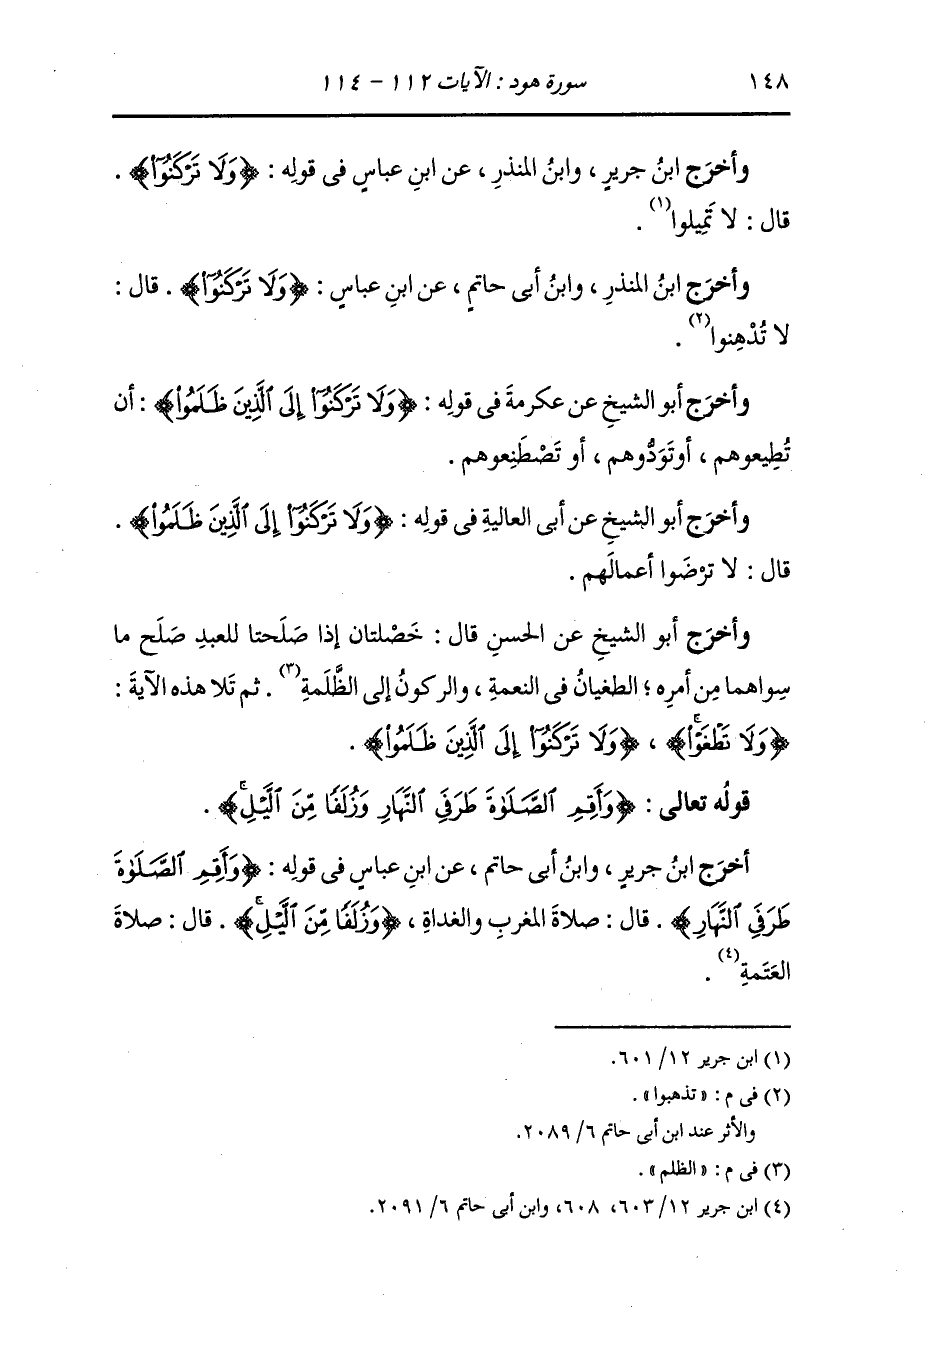 ١٤٨ سورة هود : الآيات ١١٢ - ١١٤
وأخرَج ابنُ جريرٍ ، وابنُ المنذرِ ، عن ابنِ عباسٍ فى قولِه : ﴿وَلَا تَرْكَنُوٓا۟﴾ .
قال : لا تَمِيلوا(١) .
وأخرَج ابنُ المنذرِ ، وابنُ أبى حاتمٍ ، عن ابنِ عباسٍ : ﴿وَلَا تَرْكَنُوٓا۟﴾ . قال :
لا تُدْهِنوا(٢) .
وأخرَج أبو الشيخِ عن عكرمةَ فى قولِه : ﴿وَلَا تَرْكَنُوٓا۟ إِلَى ٱلَّذِينَ ظَلَمُوا۟﴾ : أن
تُطِيعوهم ، أوتَوَدُّوهم ، أو تَصْطَنِعوهم .
وأخرَج أبو الشيخِ عن أبى العاليةِ فى قولِه : ﴿وَلَا تَرْكَنُوٓا۟ إِلَى ٱلَّذِينَ ظَلَمُوا۟﴾ .
قال : لا ترْضَوا أعمالَهم .
وأخرَج أبو الشيخِ عن الحسنِ قال : خَصْلتان إذا صَلَحتا للعبدِ صَلَح ما
سِواهما مِن أمرِه ؛ الطغيانُ فى النعمةِ ، والركونُ إلى الظَّلَمةِ(٣) . ثم تَلا هذه الآيةَ :
﴿وَلَا تَطْغَوْا۟ۚ﴾ ، ﴿وَلَا تَرْكَنُوٓا۟ إِلَى ٱلَّذِينَ ظَلَمُوا۟﴾ .
قولُه تعالى : ﴿وَأَقِمِ ٱلصَّلَوٰةَ طَرَفَىِ ٱلنَّهَارِ وَزُلَفًا مِّنَ ٱلَّيْلِۚ﴾ .
أخرَج ابنُ جريرٍ ، وابنُ أبى حاتمٍ ، عن ابنِ عباسٍ فى قولِه : ﴿وَأَقِمِ ٱلصَّلَوٰةَ
طَرَفَىِ ٱلنَّهَارِ﴾ . قال : صلاةَ المغربِ والغداةِ ، ﴿وَزُلَفًا مِّنَ ٱلَّيْلِۚ﴾ . قال : صلاةَ
العَتَمةِ(٤) .
(١) ابن جرير ١٢/ ٦٠١.
(٢) فى م : «تذهبوا» .
والأثر عند ابن أبى حاتم ٦/ ٢٠٨٩.
(٣) فى م : «الظلم» .
(٤) ابن جرير ١٢/ ٦٠٣، ٦٠٨، وابن أبى حاتم ٦/ ٢٠٩١.